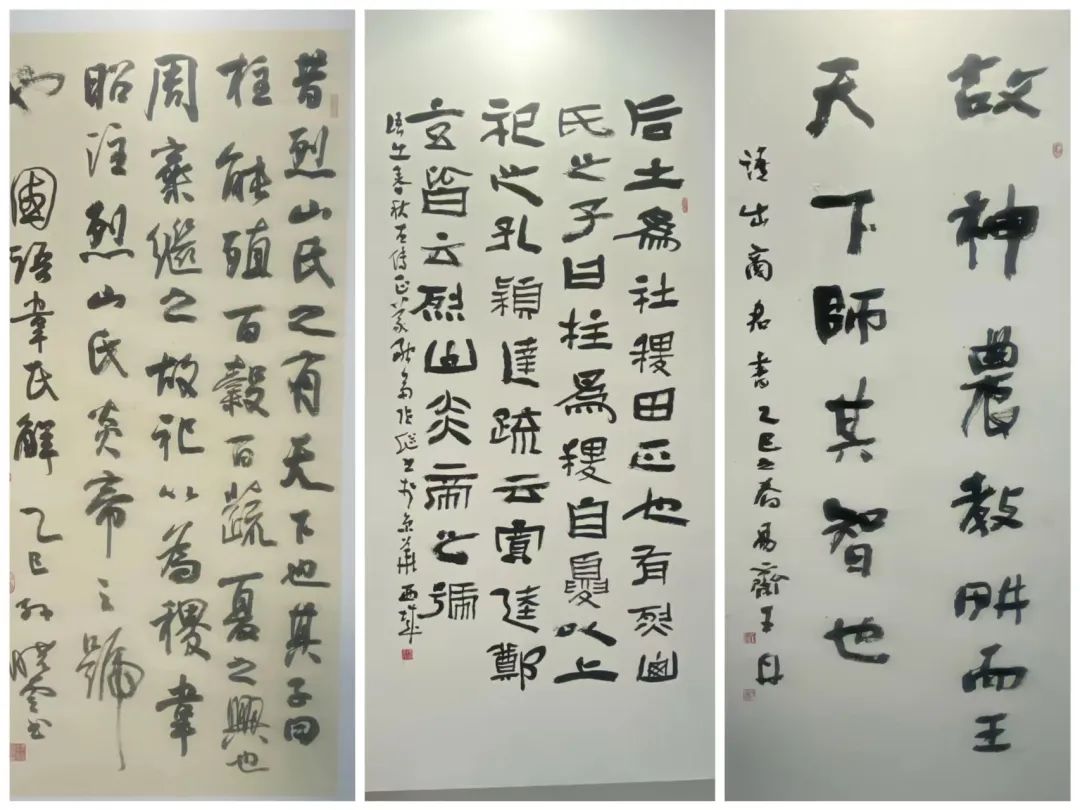 昔烈山氏之有天下也其子曰
柱能殖百穀百蔬夏之興也
周棄繼之故祀以為稷韋
昭注烈山氏炎帝之號
也 國語韋氏解 乙巳 孙晓云书
后土為社稷田正也有烈山
氏之子曰柱為稷自夏以上
祀之孔穎達疏云賈逵鄭
玄皆云烈山炎帝之號
語出春秋左傳正義 張繼書於京華西城
故神農教畊而王
天下師其智也
語出商君書乙巳之春易齋王丹